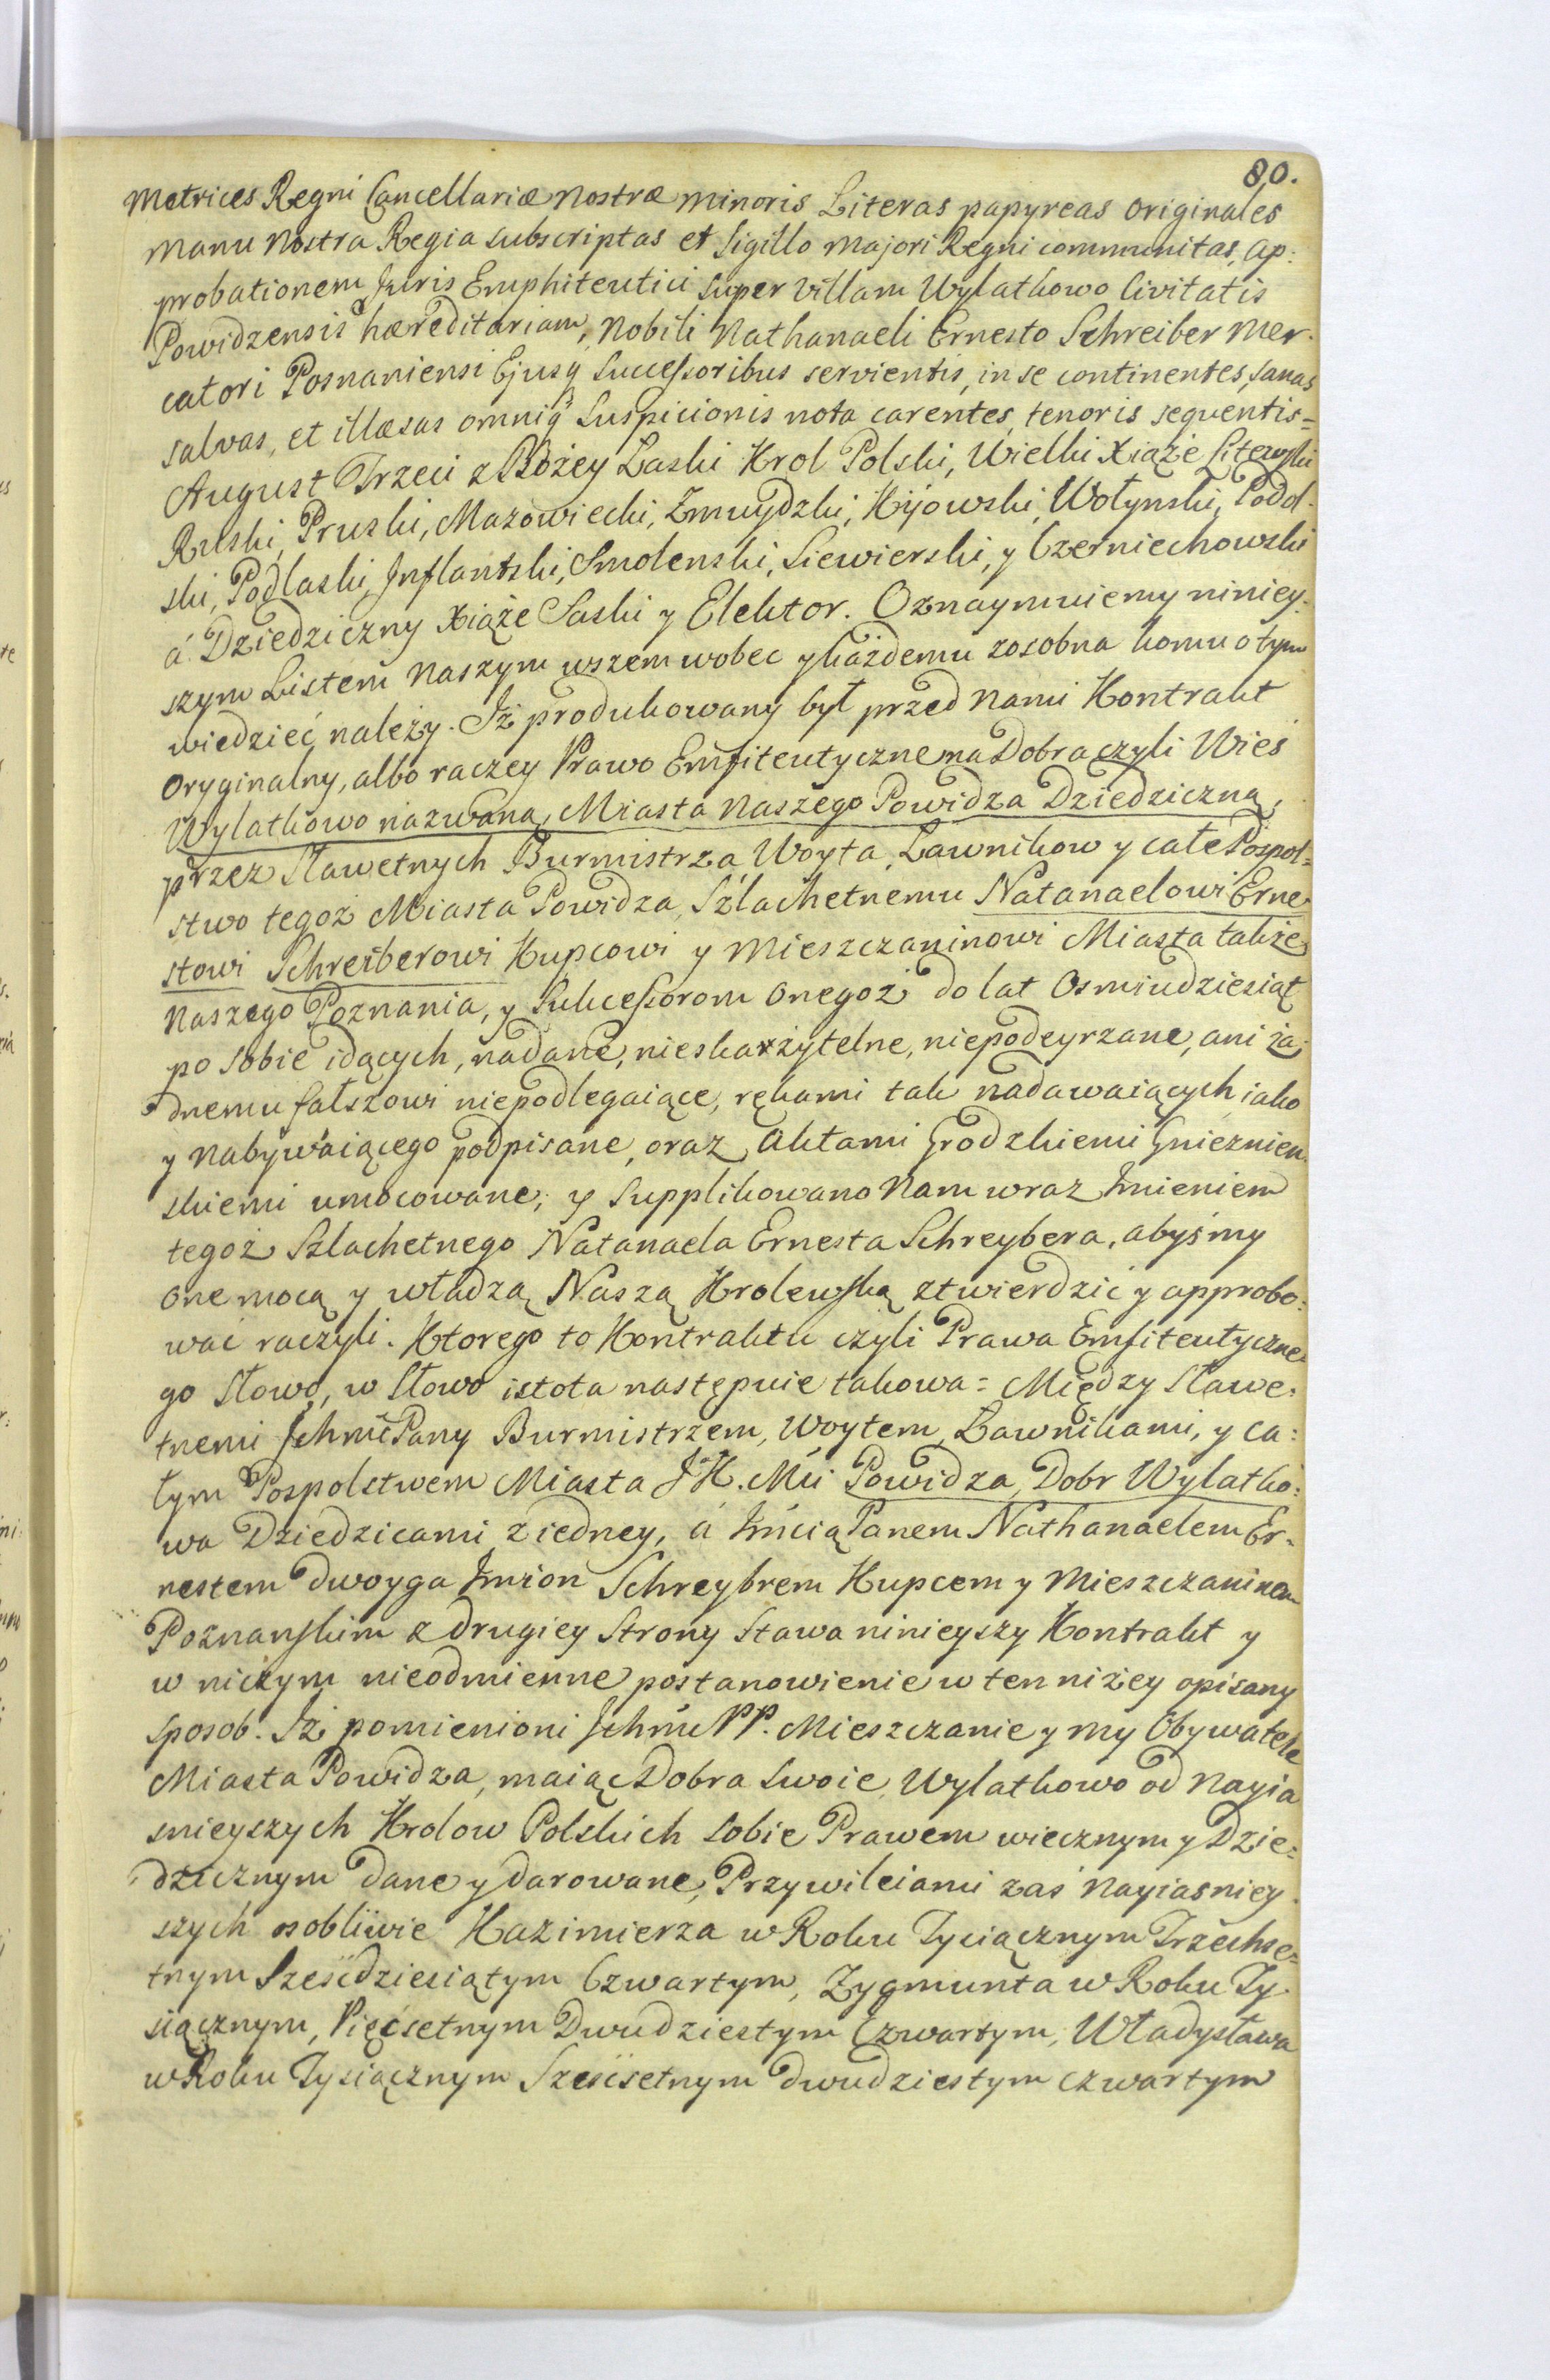 80.
Metrices Regni Cancellariæ Nostræ Minoris Literas papyreas Originales
Manu Nostra Regia subscriptas et Sigillo Majori Regni communitas, ap:
probationem Juris Emphiteutici super Villam Wylatkowo Civitatis
Powidzensis hæreditariam, Nobili Nathanaeli Ernesto Schreiber Mer-
catori Posnaniensi Ejusq̃ Successoribus servientis, in se continentes, sanas
salvas, et illæsas omniq̃ Suspicionis nota carentes, tenoris sequentis=
August Trzeci z Bożey Łaski Krol Polski, Wielki Xiąże Litewski
Ruski, Pruski, Mazowiecki, Żmuydzki, Kijowski, Wołynski, Podol-
ski, Podlaski, Inflantski, Smolenski, Siewierski, y Czerniechowski
á Dziedziczny Xiąże Saski y Elektor. Oznaymuiemy niniey:
szym Listem Naszym wszem wobec y każdemu zosobna komu o tym
wiedzieć należy. Iż produkowany był przed Nami Kontrakt
Oryginalny, albo raczey Prawo Emfiteutyczne na Dobra czyli Wieś
Wylatkowo nazwaną, Miasta Naszego Powidza Dziedziczną,
przez Sławetnych Burmistrza Woyta, Ławnikow y całe Pospol=
stwo tegoż Miasta Powidza, Szlachetnemu Natanaelowi Erne
stowi Schreiberowi Kupcowi y Mieszczaninowi Miasta także
Naszego Poznania, y Sukcessorom Onegoż do lat Osmiudziesiąt
po sobie idących, nadane, nieskażytelne, niepodeyrzane, ani ża:
dnemu fałszowi niepodlegaiące, rękami tak nadawaiących iako
y nabywaiącego podpisane, oraz Aktami Grodzkiemi Gnieznien
skiemi umocowane; y Supplikowano Nam wraz Imieniem
tegoż Szlachetnego Natanaela Ernesta Schreybera, abyśmy
One mocą y władzą Naszą Krolewską ztwierdzić y approbo:
wać raczyli. Ktorego to Kontraktu czyli Prawa Emfiteutyczne=
go Słowo, w Słowo istota następuie takowa= Między Sławe:
tnemi Ichmć Pany Burmistrzem, Woytem, Ławnikami, y ca:
łym Pospolstwem Miasta J K. Mći Powidza, Dobr Wylatko:
wa Dziedzicami z iedney, á Imcią Panem Nathanaelem Er-
nestem dwoyga Imion Schreybrem Kupcem y Mieszczaninem
Poznanskim z drugiey Strony Stawa ninieyszy Kontrakt y
w niczym nieodmienne postanowienie w ten niżey opisany
sposob. Iż pomienioni Ichmć PP. Mieszczanie y my Obywatele
Miasta Powidza, maiąc Dobra Swoie Wylatkowo od Nayia
snieyszych Krolow Polskich sobie Prawem wiecznym y Dzie=
dzicznym dane y darowane, Przywileiami zaś Nayiasniey
szych osobliwie Kazimierza w Roku Tysiącznym Trzechse=
tnym Sześćdziesiątym Czwartym, Zygmunta w Roku Ty-
siącznym, Pięćsetnym Dwudziestym Czwartym, Władysława
w Roku Tysiącznym Sześćsetnym dwudziestym czwartym